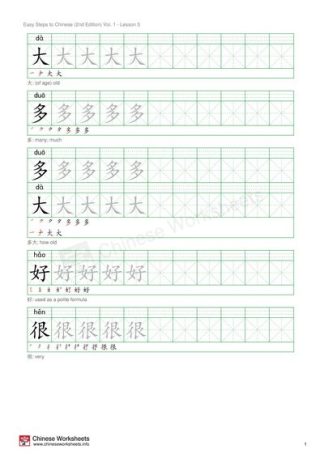 Easy Steps to Chinese (2nd Edition) Vol. 1 - Lesson 5
dà
大 大 大 大 大
大: (of age) old
duō
多 多 多 多 多
多: many; much
duō
多 多 多 多 多
dà
大 大 大 大 大
多大: how old
hǎo
好 好 好 好 好
好: used as a polite formula
hěn
很 很 很 很 很
很: very
Chinese Worksheets
Chinese Worksheets
www.chineseworksheets.info
1